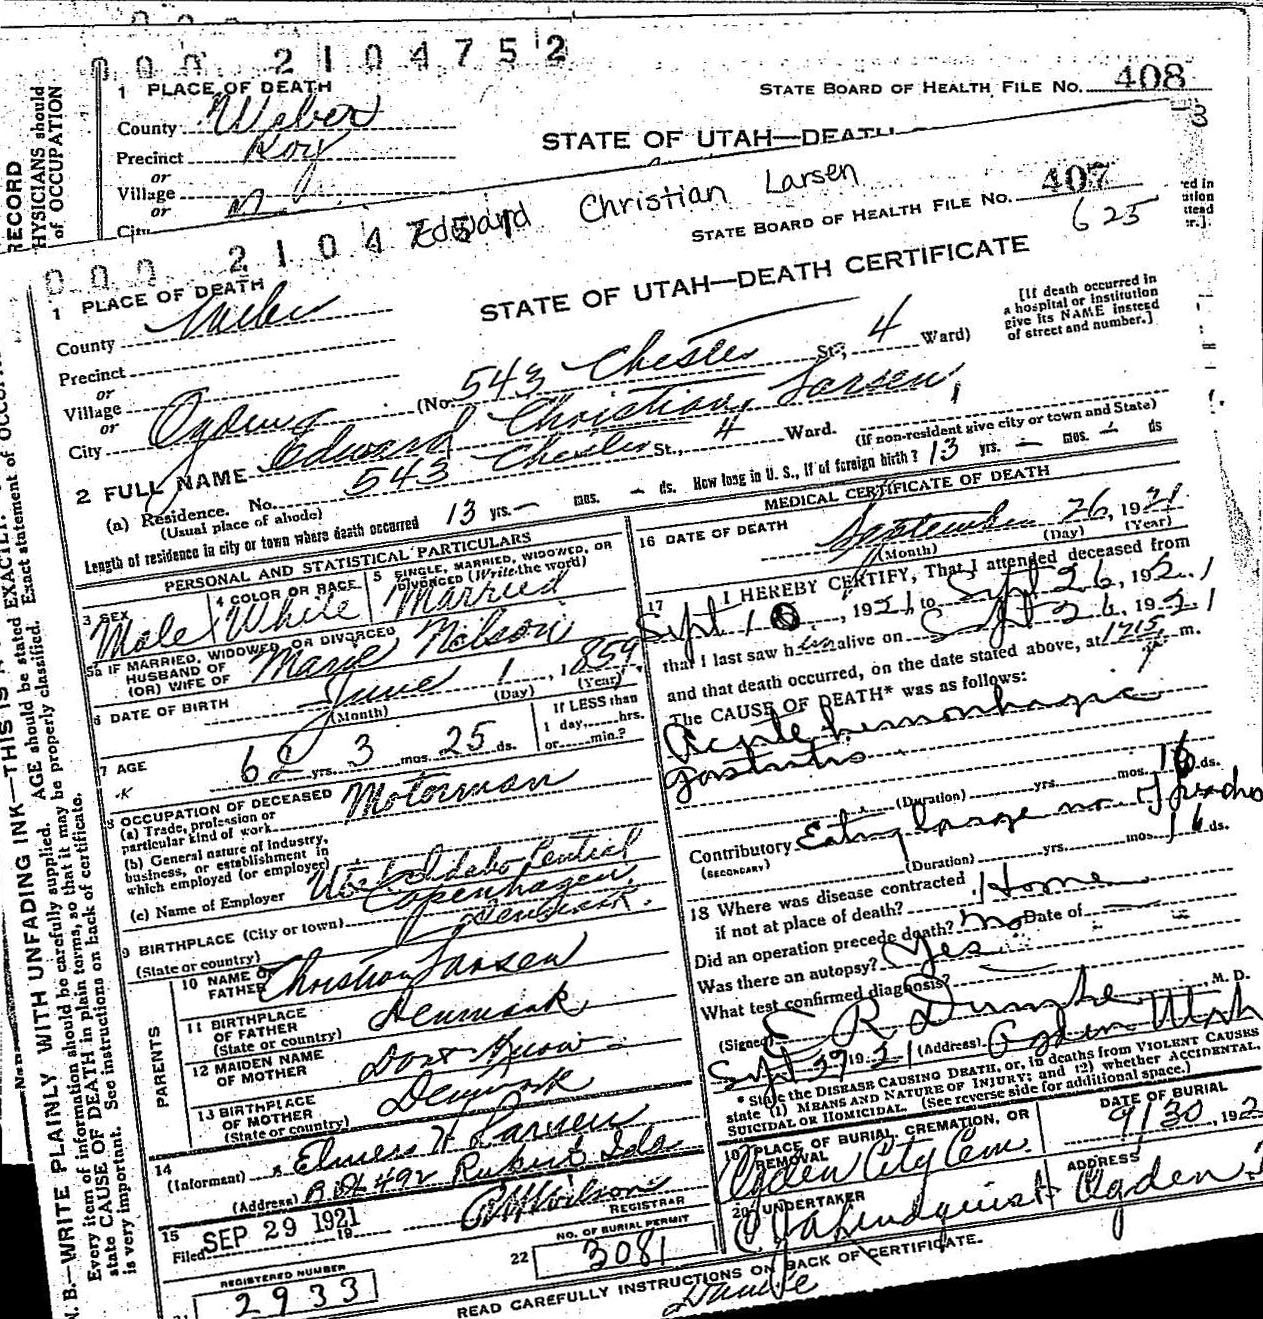 000 2104752
1 PLACE OF DEATH
STATE BOARD OF HEALTH FILE NO. 408
County Weber
STATE OF UTAH—DEATH
Precinct Roy
or
Village
or
City
RECORD
HYSICIANS should
of OCCUPATION
Edward Christian Larsen
000 2104751
STATE BOARD OF HEALTH FILE NO. 407
625
1 PLACE OF DEATH
STATE OF UTAH—DEATH CERTIFICATE
County Weber
[If death occurred in
a hospital or institution
give its NAME instead
of street and number.]
Precinct
or
Village
or
City Ogden (No. 543 Chester St., 4 Ward)
2 FULL NAME Edward Christian Larsen
(a) Residence. No. 543 Chester St., 4 Ward.
(Usual place of abode) (If non-resident give city or town and State)
Length of residence in city or town where death occurred 13 yrs. — mos. — ds. How long in U. S., if of foreign birth? 13 yrs. — mos. — ds
PERSONAL AND STATISTICAL PARTICULARS
3 SEX Male
4 COLOR OR RACE White
5 SINGLE, MARRIED, WIDOWED, OR
DIVORCED (Write the word)
Married
5a IF MARRIED, WIDOWED OR DIVORCED
HUSBAND OF
(OR) WIFE OF Marie Nelson
6 DATE OF BIRTH June 1, 1859
(Month) (Day) (Year)
7 AGE 62 yrs. 3 mos. 25 ds.
If LESS than
1 day,......hrs.
or......min.?
8 OCCUPATION OF DECEASED
(a) Trade, profession or
particular kind of work Motorman
(b) General nature of industry,
business, or establishment in
which employed (or employer)
(c) Name of Employer Utah Idaho Central
9 BIRTHPLACE (City or town) Copenhagen
(State or country) Denmark.
PARENTS
10 NAME OF
FATHER Christian Larsen
11 BIRTHPLACE
OF FATHER
(State or country) Denmark
12 MAIDEN NAME
OF MOTHER Dont Know
13 BIRTHPLACE
OF MOTHER
(State or country) Denmark
14
(Informant) Elmer H Larsen
(Address) Box 492 Rupert Ida
15
Filed SEP 29 1921 19
REGISTRAR
REGISTERED NUMBER
21 2933
22 NO. OF BURIAL PERMIT
3081
MEDICAL CERTIFICATE OF DEATH
16 DATE OF DEATH
September 26, 1921
(Month) (Day) (Year)
17 I HEREBY CERTIFY, That I attended deceased from
Sept 10, 1921 to Sept 26, 1921
that I last saw him alive on Sept 26, 1921
and that death occurred, on the date stated above, at 1215 m.
The CAUSE OF DEATH* was as follows:
Acute hemorrhagic
gastritis
(Duration) yrs. mos. 16 ds.
Contributory Eating large no of
(SECONDARY)
(Duration) yrs. mos. 16 ds.
18 Where was disease contracted
if not at place of death? Home
Did an operation precede death? no Date of
Was there an autopsy? Yes
What test confirmed diagnosis?
(Signed) E R Dumke M. D.
Sept 29 1921 (Address) Ogden Utah
* State the DISEASE CAUSING DEATH, or, in deaths from VIOLENT CAUSES
state (1) MEANS AND NATURE OF INJURY; and (2) whether ACCIDENTAL,
SUICIDAL OR HOMICIDAL. (See reverse side for additional space.)
19 PLACE OF BURIAL CREMATION, OR
REMOVAL
Ogden City Cem.
DATE OF BURIAL
9/30, 192
20 UNDERTAKER
Lindquist
ADDRESS
Ogden
READ CAREFULLY INSTRUCTIONS ON BACK OF CERTIFICATE.
Dumke
N. B.—WRITE PLAINLY WITH UNFADING INK—THIS IS A
Every item of information should be carefully supplied. AGE should be stated EXACTLY.
state CAUSE OF DEATH in plain terms, so that it may be properly classified. Exact statement of
is very important. See instructions on back of certificate.